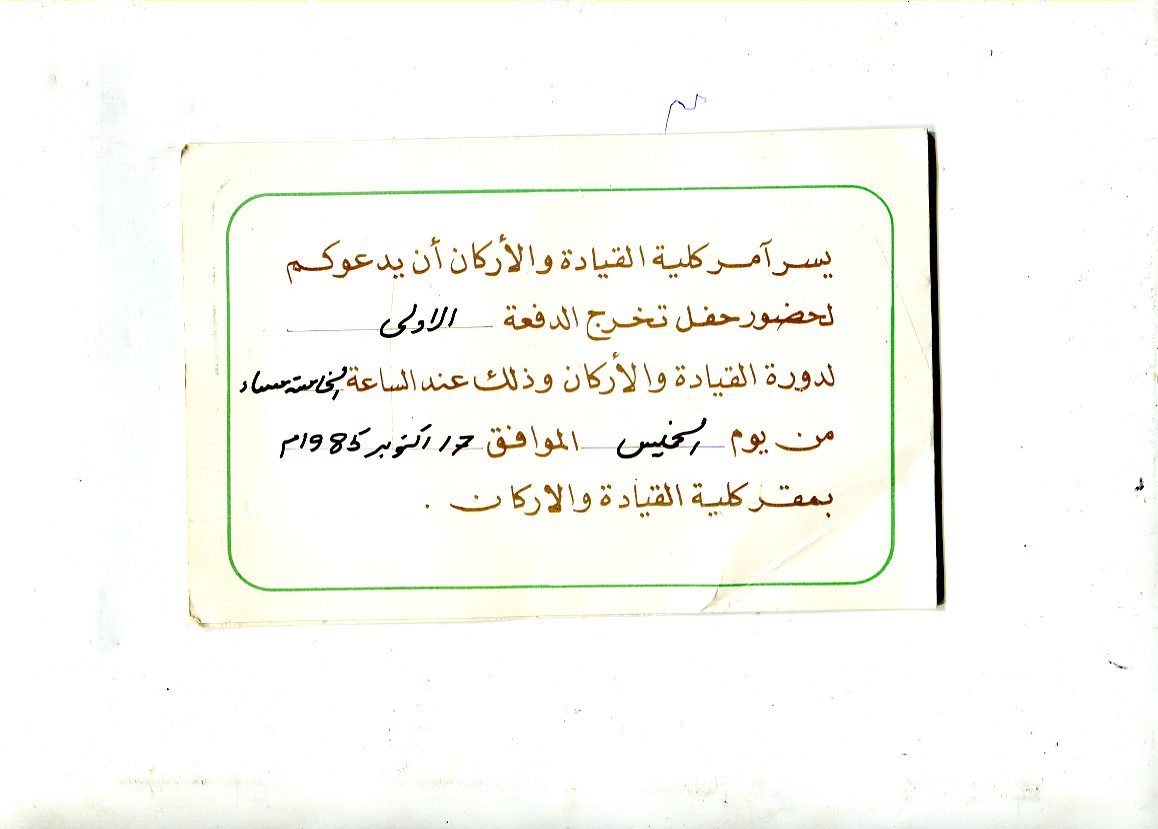 يسر آمر كلية القيادة والأركان أن يدعوكم
لحضور حفل تخرج الدفعة الاولى
لدورة القيادة والأركان وذلك عند الساعة الخامسة مساء
من يوم الخميس الموافق 17 اكتوبر 1985م
بمقر كلية القيادة والاركان .